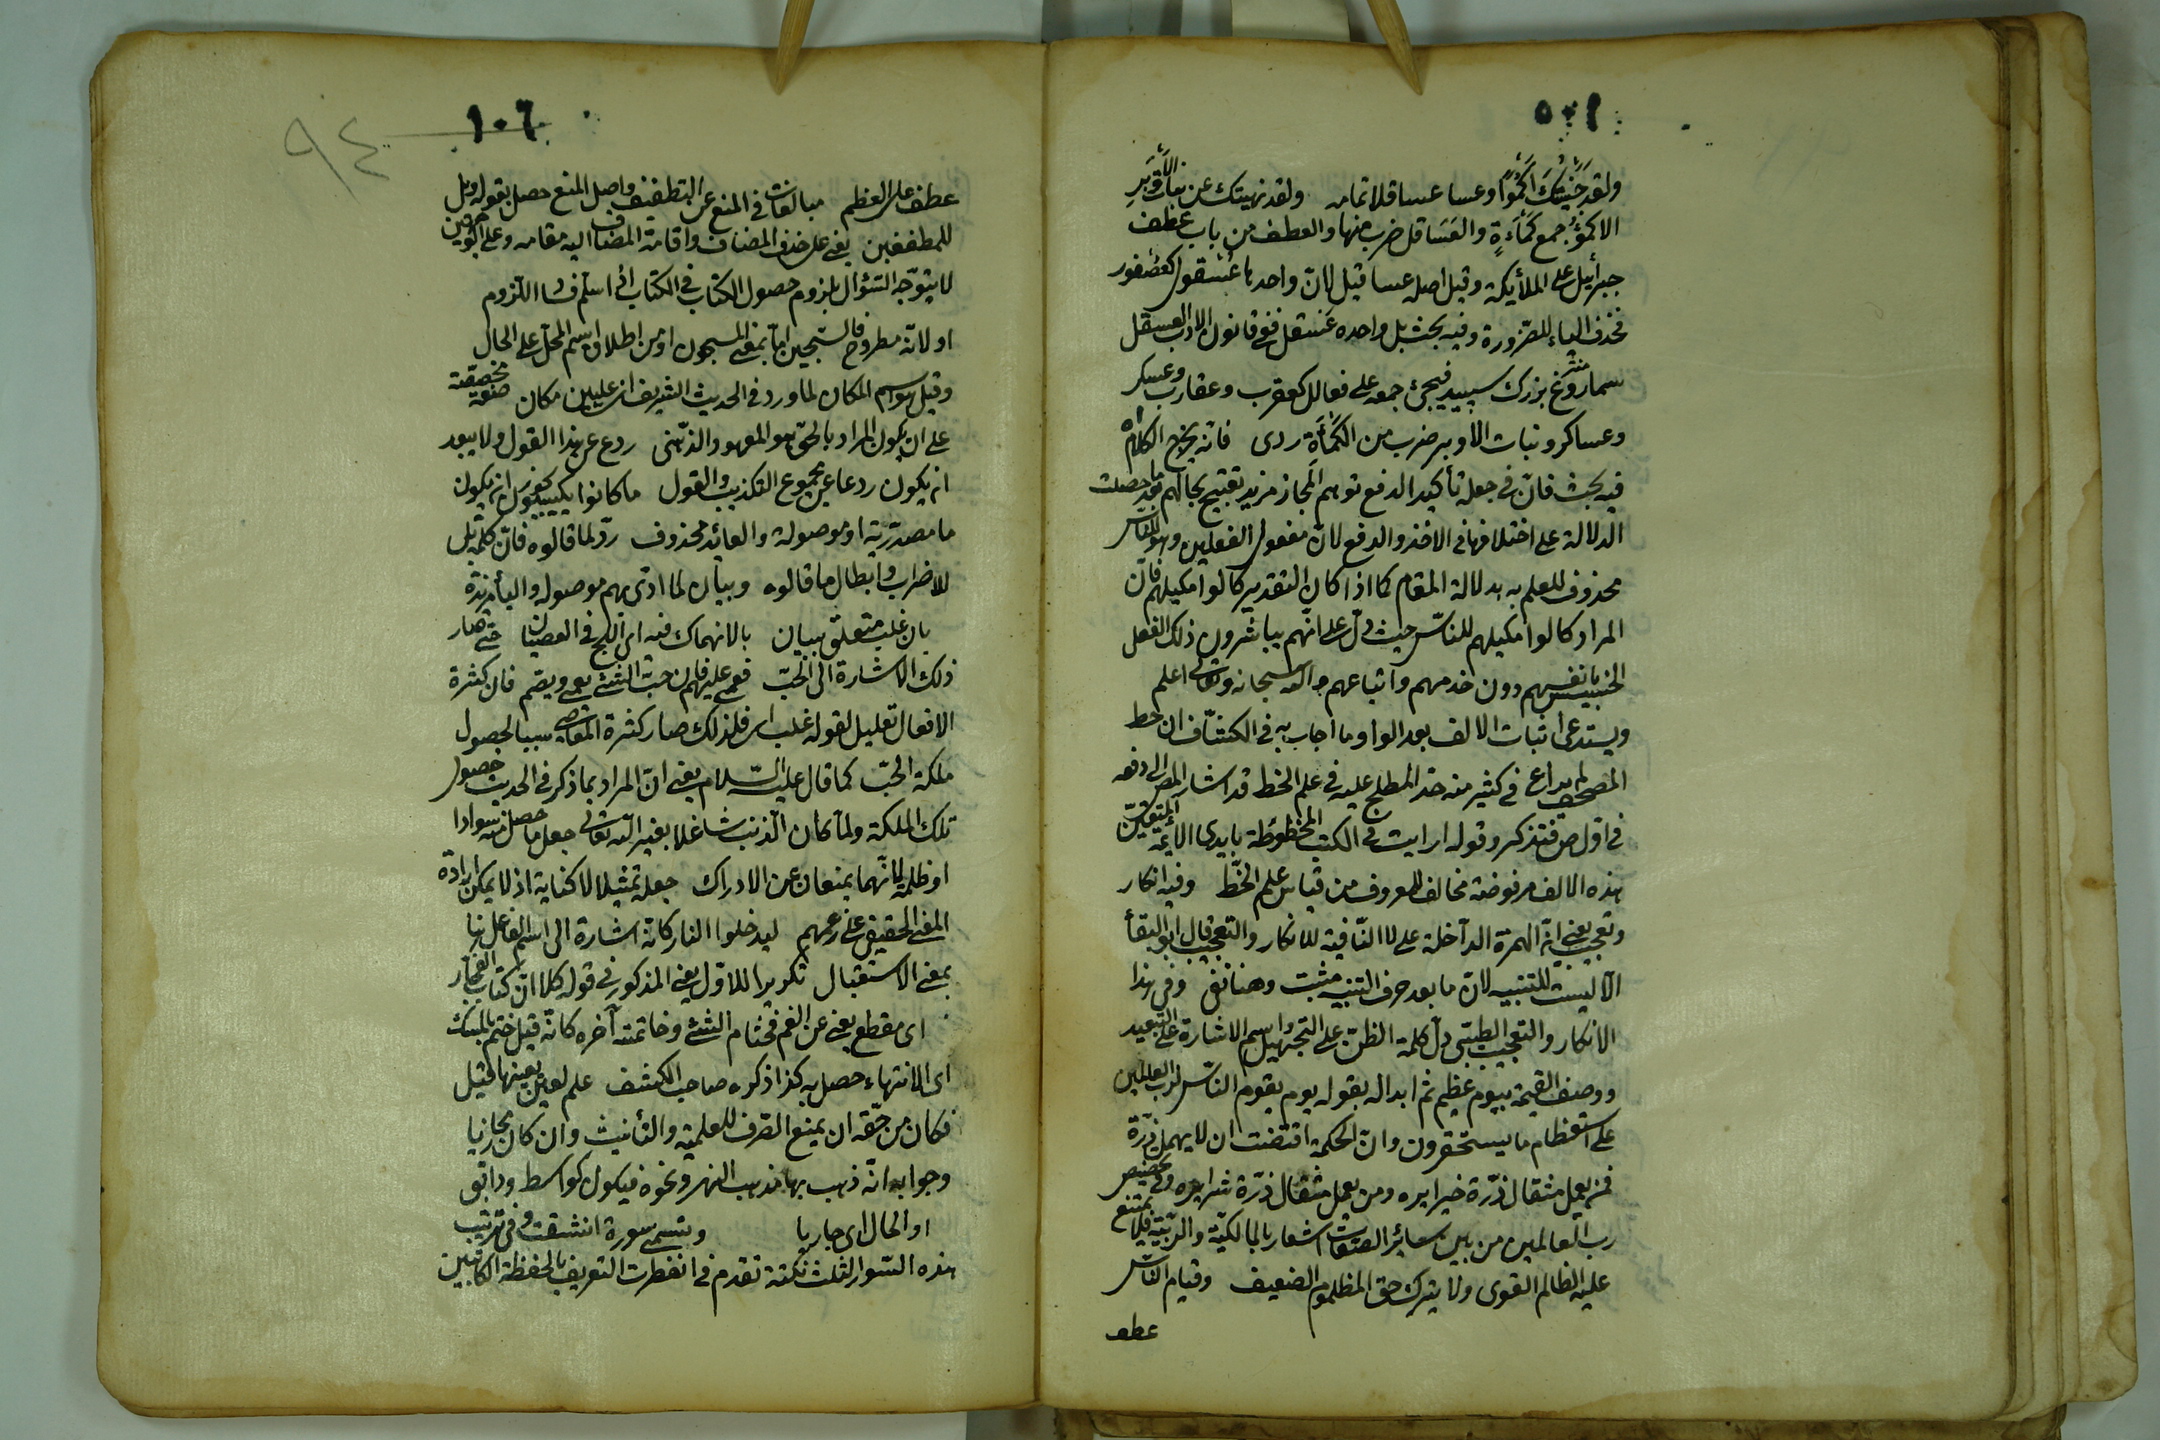 ١٠٥
ولقد جنيتك اكمؤا وعسا عساقلا تمامه ولقد نهيتك عن بنات الاوبر
الاكمؤ جمع كمأءة والعساقل ضرب منها والعطف من باب عطف
جبرائيل على الملائكة وقيل اصله عساقيل لانّ واحدها عُسْقول كعصفور
فحذف الياء للضرورة وفيه بحث بل واحده عسقل ففي قانون الادب العسقل
سماروغ بزرك سپيد فيجئ جمعه على فعالل كعقرب وعقارب وعسكر
وعساكر ونبات الاوبر ضرب من الكمأة ردى فانه يخرج الكلام اه
فيه بحث فانّ في جعله تأكيدا لدفع توهم المجاز مزيد تقبيح بحالهم ما قد حصلت
الدلالة على اختلافها في الاخذ والدفع لانّ مفعول الفعلين وهو للناس
محذوف للعلم به بدلالة المقام كما اذا كان التقدير كالوا مكيلهم فانّ
المراد كالوا مكيلهم للناس حيث دلّ على انّهم يباشرون ذلك الفعل
الخسيس بانفسهم دون خدمهم واتباعهم والله سبحانه وتعالى اعلم
ويستدعى اثبات الالف بعد الواو وما اجاب به في الكشّاف ان خط
المصحف لم يراع في كثير منه حدّ المطلح عليه في علم الخط قد اشار المص الى دفعه
في اول ص فتذكر وقوله ارايت في الكتب المخطوطة بايدى الائمة المتقنين
هذه الالف مرفوضة مخالف للمعروف من قياس علم الخّط وفيه انكار
وتعجيب يعني انّ الهمزة الداخلة على لا النّافية للانكار والتعجيب قال ابو البقأ
الا ليست للتنبيه لانّ ما بعد حرف التنبيه مثبت وهنا نفى وفي هذا
الانكار والتعجيب الطيبى دلّ كلمة الظنّ على التجهيل واسم الاشارة على التبعيد
ووصف القيمة بيوم عظيم ثم ابداله بقوله يوم يقوم الناس لرب العالمين
على استعظام ما يستحقرون وانّ الحكمة اقتضت ان لا يهمل ذرّة
فمن يعمل مثقال ذرّة خيرا يره ومن يعمل مثقال ذرّة شرا يره وتخصيص
رب العالمين من بين سائر الصفات اشعار بالمالكيّة والربّية فلا يمتنع
عليه الظالم القوى ولا يترك حق المظلموم الضعيف وقيام الناس
عطف
١٠٦
٩٤
عطف على العظم مبالغات في المنع عن التطفيف واصل المنع حصل بقوله ويل
للمطففين يعني على حذف المضاف واقامة المضاف اليه مقامه وعلى الوجهين
لا يتوجّه السّؤال بلزوم حصول الكتاب في الكتاب
او لانّه مطروح فالسّجين امّا بمعنى المسجون او من اطلاق اسم المحلّ على الحال
وقيل هو اسم المكان لما ورد في الحديث الشريف ان عليين مكان صفة مخصّصة
على ان يكون المراد بالحق هو المعهود الذّهنى ردع عن هذا القول ولا يبعد
ان يكون ردعا عن مجموع التكذيب والقول ما كانوا يكسبون يجوز ان يكون
ما مصدريّة او موصولة والعائد محذوف ردّ لما قالوه فانّ كلمة بل
للاضراب وابطال ما قالوه وبيان لما ادّى بهم موصوله والبأ زائدة
بان غلب متعلّق ببيان بالانهماك فيه اى اللج في العصيان حتى صار
ذلك الاشارة الى الحبّ فعمى عليهم فان حبّ الشئ يعمى ويصم فان كثرة
الافعال تعليل لقوله غلب اى فلذلك صار كثرة المعاصي سببا لحصول
ملكة الحبّ كما قال عليه السّلام يعني انّ المراد بما ذكر في الحديث حصول
تلك الملكة ولما كان الذنب شاغلا بغير الله تعالى جعل ما حصل منه سوادا
او ظلمة لانّهما يمنعان عن الادراك جعله تمثيلا لا كناية اذ لا يمكن ارادة
المعنى الحقيقى على زعمهم ليدخلوا النار كانّه اشارة الى اسم الفاعل هنا
بمعنى الاستقبال تكرير للاوّل يعني المذكور في قوله كلا انّ كتاب الفجّار
اى مقطع يعني عن الفم فختام الشئ وخاتمته آخره كانّه قيل ختم بالمسك
اى الانتهاء حصل به كذا ذكره صاحب الكشف علم لعين بعينها قيل
فكان من حقّه ان يمنع الصّرف للعلميّة والتأنيث وان كان مجازيا
وجوابه انّه ذهب بها مذهب النهر ونحوه فيكون كواسط ودابق
او الحال اى جاريا وتسمى سورة انشقت وفي ترتيب
هذه السّور الثلث نكتة تقدم في انفطرت التعريف بالحفظة الكاتبين